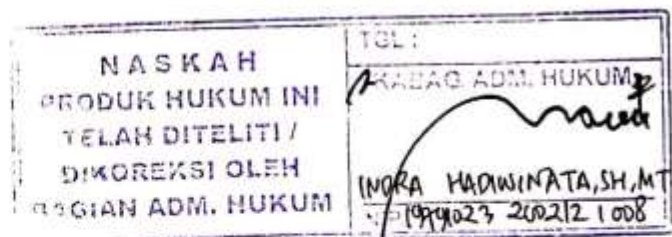 NASKAH
PRODUK HUKUM INI
TELAH DITELITI /
DIKOREKSI OLEH
BAGIAN ADM. HUKUM
TGL :
KABAG ADM. HUKUM
INDRA HADIWINATA, SH, MT
NIP 19791023 200212 1 008